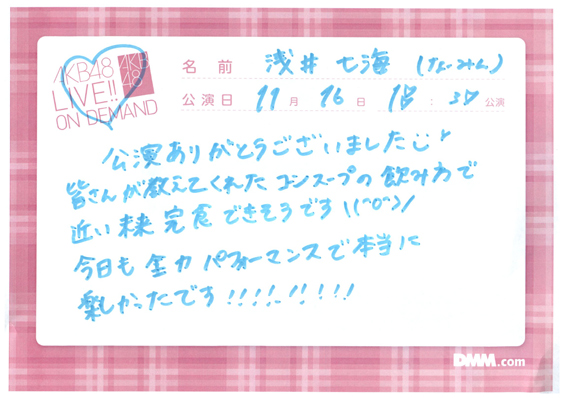 AKB48
LIVE!!
ON DEMAND
AKB
48
名前 浅井七海 (なーみん)
公演日 11月16日 18:30公演
公演ありがとうございました
皆さんが教えてくれたコンスープの飲み方で
近い未来完食できそうです\(^o^)/
今日も全力パフォーマンスで本当に
楽しかったです!!!!!!!!!
DMM.com